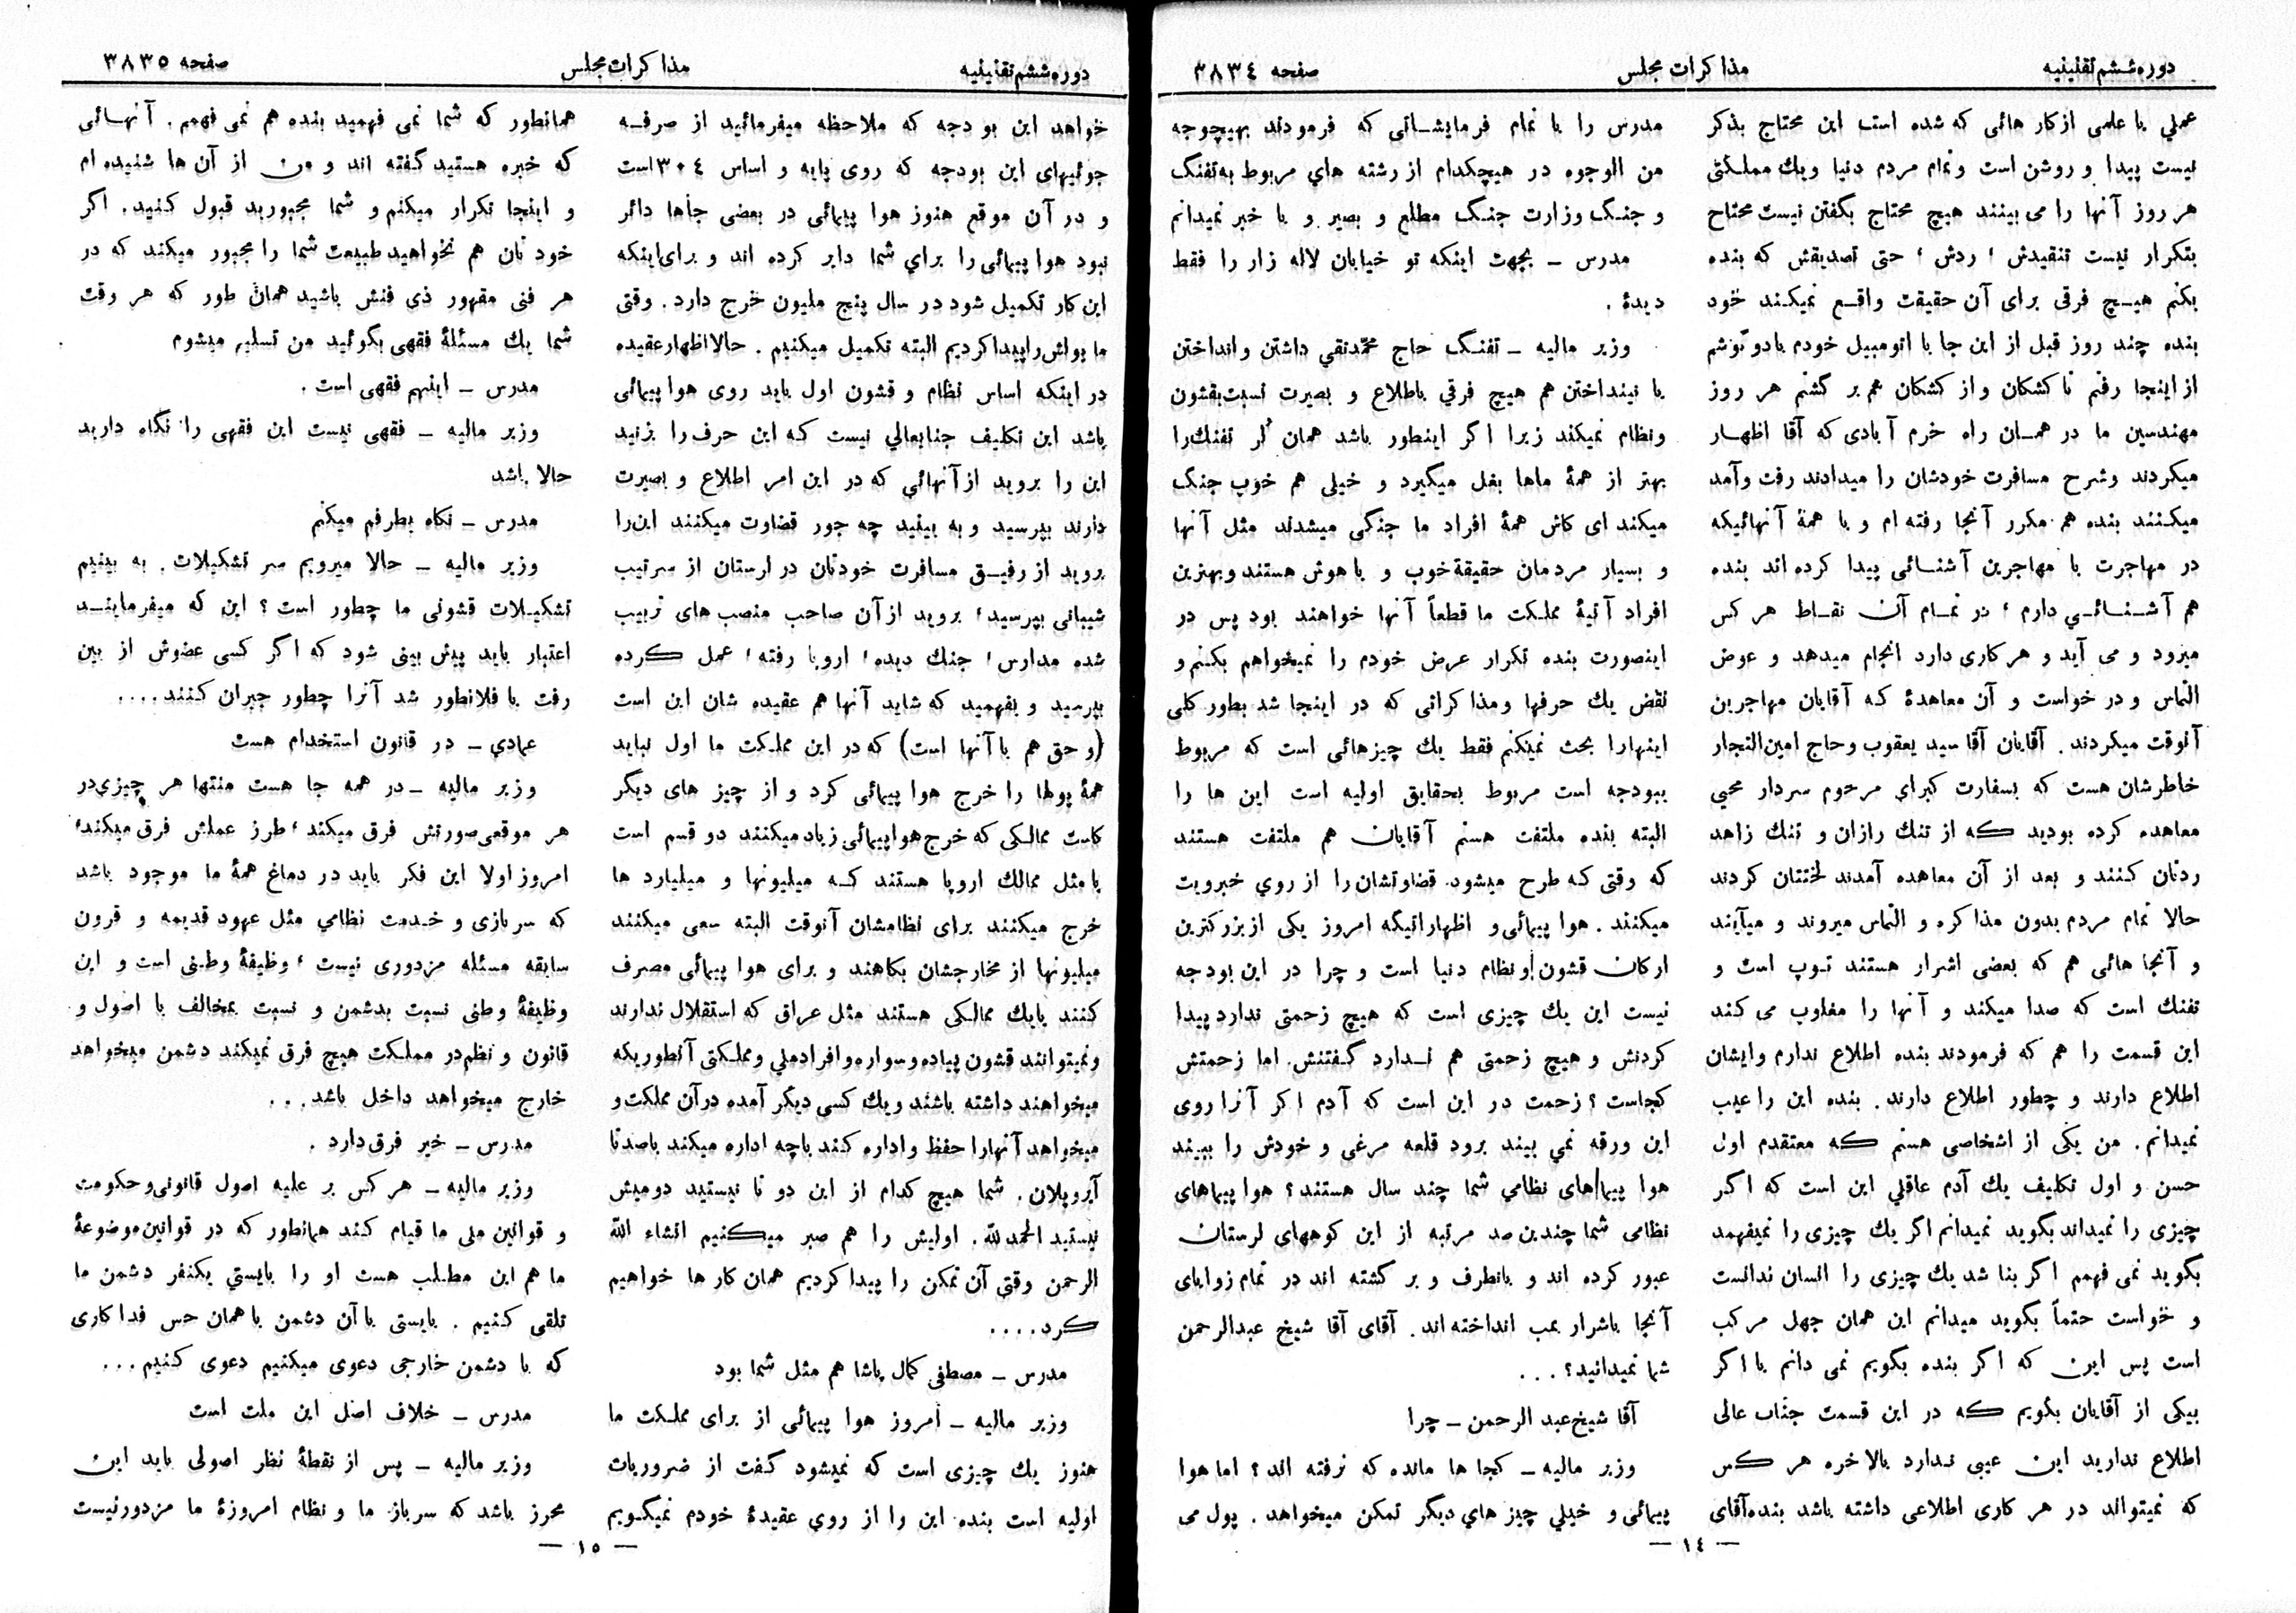 دوره ششم تقنینیه
مذاکرات مجلس
صفحه ۳۸۳٤
عملي یا علمی از کار هائی که شده است این محتاج بذکر
نیست پیدا و روشن است و تمام مردم دنیا و یك مملکتی
هر روز آنها را می بینند هیچ محتاج بگفتن نیست محتاج
بتکرار نیست تنقیدش ، ردش ، حتی تصدیقش که بنده
بکنم هیـچ فرقی برای آن حقیقت واقـع نمیکـند خود
بنده چند روز قبل از این جا با اتومبیل خودم با دو توشم
از اینجا رفتم تا کشکان و از کشکان هم بر گشتم هر روز
مهندسین ما در همـان راه خرم آبادی که آقا اظهـار
میکردند و شرح مسافرت خودشان را میدادند رفت و آمد
میکـنند بنده هم مکرر آنجا رفته ام و با همهٔ آنهائیکه
در مهاجرت با مهاجرین آشنـائی پیدا کرده اند بنده
هم آشـنـائـي دارم ، در تمـام آن نقـاط هر کس
میرود و می آید و هر کاری دارد انجام میدهد و عوض
التماس و در خواست و آن معاهدهٔ که آقایان مهاجرین
آنوقت میکردند . آقایان آقا سید یعقوب و حاج امین التجار
خاطرشان هست که بسفارت کبرای مرحوم سردار محیی
معاهده کرده بودید که از تنك رازان و تنك زاهد
ردتان کـنند و بعد از آن معاهده آمدند لختتان کردند
حالا تمام مردم بدون مذاکره و التماس میروند و میآیند
و آنجا هائی هم که بعضی اشرار هستند توپ است و
تفنك است که صدا میکند و آنها را مغلوب می کند
این قسمت را هم که فرمودند بنده اطلاع ندارم و ایشان
اطلاع دارند و چطور اطلاع دارند . بنده این را عیب
نمیدانم . من یکی از اشخاصی هستم که معتقدم اول
حسن و اول تکلیف یك آدم عاقلي این است که اگر
چیزی را نمیداند بگوید نمیدانم اگر یك چیزی را نمیفهمد
بگوید نمی فهمم اگر بنا شد یك چیزی را انسان ندانست
و خواست حتماً بگوید میدانم این همان جهل مرکب
است پس این که اگر بنده بگویم نمی دانم یا اگر
بیکی از آقایان بگویم که در این قسمت جناب عالی
اطلاع ندارید این عیبی ندارد بالاخره هر کس
که نمیتواند در هر کاری اطلاعی داشته باشد بنده آقای
مدرس را با تمام فرمایشـاتی که فرمودند بهیچوجه
من الوجوه در هیچکدام از رشته هاي مربوط به تفنگ
و جنـگ وزارت جنـگ مطلع و بصیر و با خبر نمیدانم
مدرس ـ بجهت اینکه تو خیابان لاله زار را فقط
دیدهٔ .
وزیر مالیه ـ تفنـگ حاج محمدتقي داشتن و انداختن
یا نینداختن هم هیچ فرقي باطلاع و بصیرت نسبت بقشون
و نظام نمیکند زیرا اگر اینطور باشد همان لر تفنك را
بهتر از همهٔ ماها بغل میگیرد و خیلی هم خوب جنك
میکند ای کاش همهٔ افراد ما جنگی میشدند مثل آنها
و بسیار مردمان حقیقة خوب و با هوش هستند و بهترین
افراد آتیهٔ مملکت ما قطعاً آنها خواهند بود پس در
اینصورت بنده تکرار عرض خودم را نمیخواهم بکنم و
نقض یك حرفها و مذاکراتی که در اینجا شد بطور کلی
اینهارا بحث نمیکنم فقط یك چیزهائی است که مربوط
ببودجه است مربوط بحقایق اولیه است این ها را
البته بنده ملتفت هستم آقایان هم ملتفت هستند
که وقتی که طرح میشود. قضاوتشان را از روي خبرویت
میکنند . هوا پیمائی و اظهاراتیگه امروز یکی از بزرکترین
ارکان قشون و نظام دنیا است و چرا در این بودجه
نیست این یك چیزی است که هیچ زحمتی ندارد پیدا
کردنش و هیچ زحمتی هم نـدارد گـفتنش. اما زحمتش
کجاست ؟ زحمت در این است که آدم اکر آنرا روی
این ورقه نمي بیند برود قلعه مرغی و خودش را ببیند
هوا پیماهای نظامي شما چند سال هستند ؟ هوا پیماهای
نظامی شما چندین صد مرتبه از این کوههای لرستان
عبور کرده اند و بانطرف و بر گشته اند در تمام زوایای
آنجا باشرار بمب انداخته اند . آقای آقا شیخ عبدالرحمن
شما نمیدانید ؟ . . .
آقا شیخ عبد الرحمن ـ چرا
وزیر مالیه ـ کجا ها مانده که نرفته اند ؟ اما هوا
پیمائی و خیلي چیز هاي دیگر تمکن میخواهد . پول می
— ۱٤ —
دوره ششم تقنینیه
مذاکرات مجلس
صفحه ۳۸۳۵
خواهد این بودجه که ملاحظه میفرمائید از صرفـه
جوئیهای این بودجه که روی پایه و اساس ۳۰٤ است
و در آن موقع هنوز هوا پیمائی در بعضی جاها دائر
نبود هوا پیمائی را براي شما دایر کرده اند و برای اینکه
این کار تکمیل شود در سال پنج ملیون خرج دارد . وقتی
ما پولش را پیدا کردیم البته تکمیل میکنیم . حالا اظهار عقیده
در اینکه اساس نظام و قشون اول باید روی هوا پیمائی
باشد این تکلیف جنابعالي نیست که این حرف را بزنید
این را بروید از آنهائي که در این امر اطلاع و بصیرت
دارند بپرسید و به بینید چه جور قضاوت میکنند این را
بروید از رفیـق مسافرت خودتان در لرستان از سرتیپ
شیبانی بپرسید ، بروید از آن صاحب منصب های تربیت
شده مدارس ، جنك دیده ، اروپا رفته ، عمل کرده
بپرسید و بفهمید که شاید آنها هم عقیده شان این است
(و حق هم با آنها است) که در این مملکت ما اول نباید
همهٔ پولها را خرج هوا پیمائی کرد و از چیز های دیگر
کاست ممالکی که خرج هواپیمائی زیاد میکنند دو قسم است
یا مثل ممالك اروپا هستند که میلیونها و میلیارد ها
خرج میکنند برای نظامشان آنوقت البته سعی میکنند
میلیونها از مخارجشان بکاهند و برای هوا پیمائی مصرف
کنند یا یك ممالکی هستند مثل عراق که استقلال ندارند
و نمیتوانند قشون پیاده و سواره و افراد ملي و مملکتی آنطوریکه
میخواهند داشته باشند و یك کسی دیگر آمده در آن مملکت و
میخواهد آنهارا حفظ و اداره کند باچه اداره میکند با صد تا
آیروپلان . شما هیچ کدام از این دو تا نیستید دومیش
نیستید الحمد لله . اولیش را هم صبر میکنیم انشاء الله
الرحمن وقتی آن تمکن را پیدا کردیم همان کار ها خواهیم
کرد . . . .
مدرس ـ مصطفی کمال پاشا هم مثل شما بود
وزیر مالیه ـ امروز هوا پیمائی از برای مملکت ما
هنوز یك چیزی است که نمیشود گفت از ضروریات
اولیه است بنده این را از روي عقیدهٔ خودم نمیگـویم
همانطور که شما نمی فهمید بنده هم نمی فهمم . آنهـائی
که خبره هستید گفته اند و من از آن ها شنیده ام
و اینجا تکرار میکنم و شما مجبورید قبول کنید . اگر
خودتان هم نخواهید طبیعت شما را مجبور میکند که در
هر فنی مقهور ذی فنش باشید همان طور که هر وقت
شما یك مسئلهٔ فقهی بگوئید من تسلیم میشوم
مدرس ـ اینهم فقهی است .
وزیر مالیه ـ فقهی نیست این فقهی را نگاه دارید
حالا باشد
مدرس ـ نکاه بطرفم میکنم
وزیر مالیه ـ حالا میرویم سر تشکیلات . به بینیم
تشکیـلات قشونی ما چطور است ؟ این که میفرماینـد
اعتبار باید پیش بینی شود که اگر کسی عضوش از بین
رفت یا فلانطور شد آنرا چطور جبران کـنند . . . .
عمادي ـ در قانون استخدام هست
وزیر مالیه ـ در همه جا هست منتها هر چیزی در
هر موقعی صورتش فرق میکند ، طرز عملش فرق میکند ،
امروز اولا این فکر باید در دماغ همهٔ ما موجود باشد
که سربازی و خـدمت نظامي مثل عهود قدیمه و قرون
سابقه مسئله مزدوری نیست ، وظیفهٔ وطنی است و این
وظیفهٔ وطنی نسبت بدشمن و نسبت بمخالف با اصول و
قانون و نظم در مملکت هیچ فرق نمیکند دشمن میخواهد
خارج میخواهد داخل باشد . . .
مدرس ـ خیر فرق دارد .
وزیر مالیه ـ هر کس بر علیه اصول قانونی و حکومت
و قوانین ملی ما قیام کند همانطور که در قوانین موضوعهٔ
ما هم این مطلب هست او را بایستي یکنفر دشمن ما
تلقی کنیم . بایستی با آن دشمن با همان حس فداکاری
که با دشمن خارجی دعوی میکنیم دعوی کنیم . . .
مدرس ـ خلاف اصل این ملت است
وزیر مالیه ـ پس از نقطهٔ نظر اصولی باید این
محرز باشد که سرباز ما و نظام امروزهٔ ما مزدور نیست
— ۱۵ —